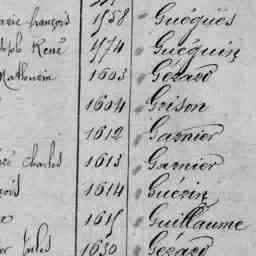 François 1558 Guéguës
René 1574 Guéguin
Mathurin 1603 Gérard
1604 Grison
1612 Garnier
Charles 1613 Garnier
1614 Guerin
1615 Guillaume
Jules 1630 Gérard